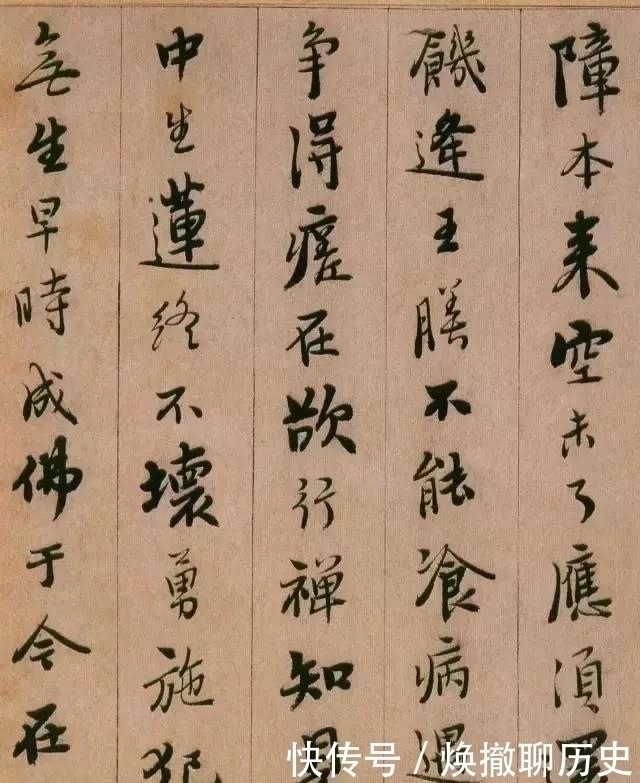 障本来空未了應湏
饑逢王膳不能飡病遇
争得瘥在欲行禪知見
中生蓮終不壞勇施犯
無生早時成佛于今在
快传号/焕撤聊历史